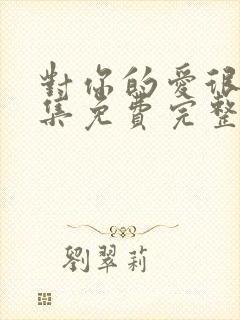 對你的愛很
集免費完整
劉翠莉